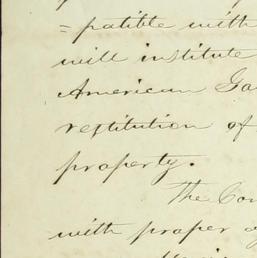 =patible with
will institute
American Ga
restitution of
property.
The Con
with proper